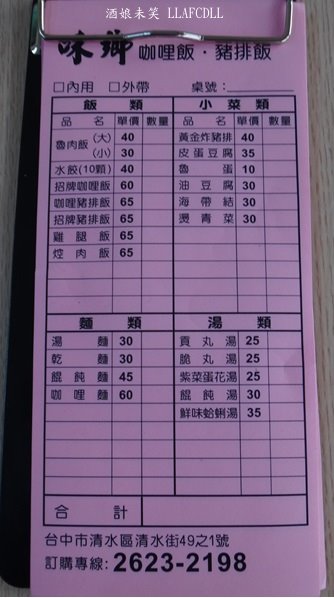 酒娘未笑 LLAFCDLL
味鄉 咖哩飯·豬排飯
□內用 □外帶 桌號:
飯類
品名 單價 數量
魯肉飯(大) 40
(小) 30
水餃(10顆) 40
招牌咖哩飯 60
咖哩豬排飯 65
招牌豬排飯 65
雞腿飯 65
焢肉飯 65
小菜類
品名 單價 數量
黃金炸豬排 40
皮蛋豆腐 35
魯蛋 10
油豆腐 30
海帶結 30
燙青菜 30
麵類
湯麵 30
乾麵 30
餛飩麵 45
咖哩麵 60
湯類
貢丸湯 25
脆丸湯 25
紫菜蛋花湯 25
餛飩湯 30
鮮味蛤蜊湯 35
合計
台中市清水區清水街49之1號
訂購專線: 2623-2198